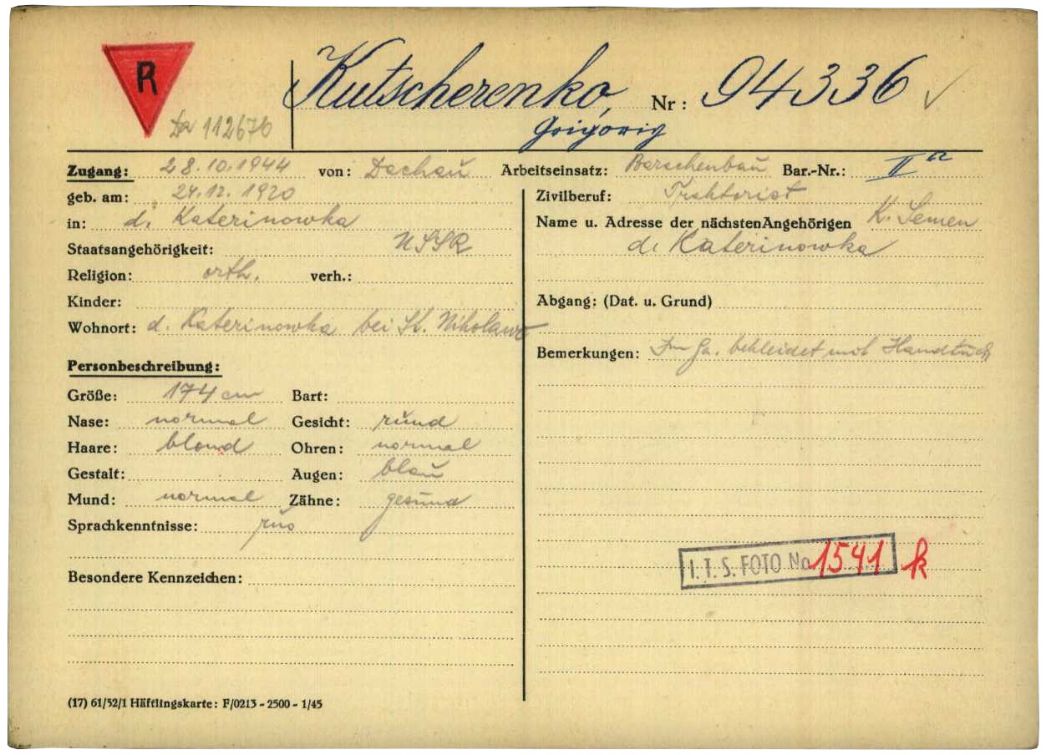 R
Kutscherenko, Nr: 94336
Da 112676
Grigorig
Zugang: 28.10.1944 von: Dachau Arbeitseinsatz: Bar.-Nr.: II a
geb. am: 24.12.1920 Zivilberuf: Traktorist
in: d. Katerinowka Name u. Adresse der nächsten Angehörigen K. Semen
Staatsangehörigkeit: USSR d. Katerinowka
Religion: orth. verh.:
Kinder: Abgang: (Dat. u. Grund)
Wohnort: d. Katerinowka bei St. Nikolawo
Bemerkungen: bekleidet mit Handtuch
Personbeschreibung:
Größe: 174 cm Bart:
Nase: normal Gesicht: rund
Haare: blond Ohren: normal
Gestalt: Augen: blau
Mund: normal Zähne: gesund
Sprachkenntnisse: rus
I. T. S. FOTO No 1541 k
Besondere Kennzeichen:
(17) 61/52/1 Häftlingskarte: F/0213 - 2500 - 1/45